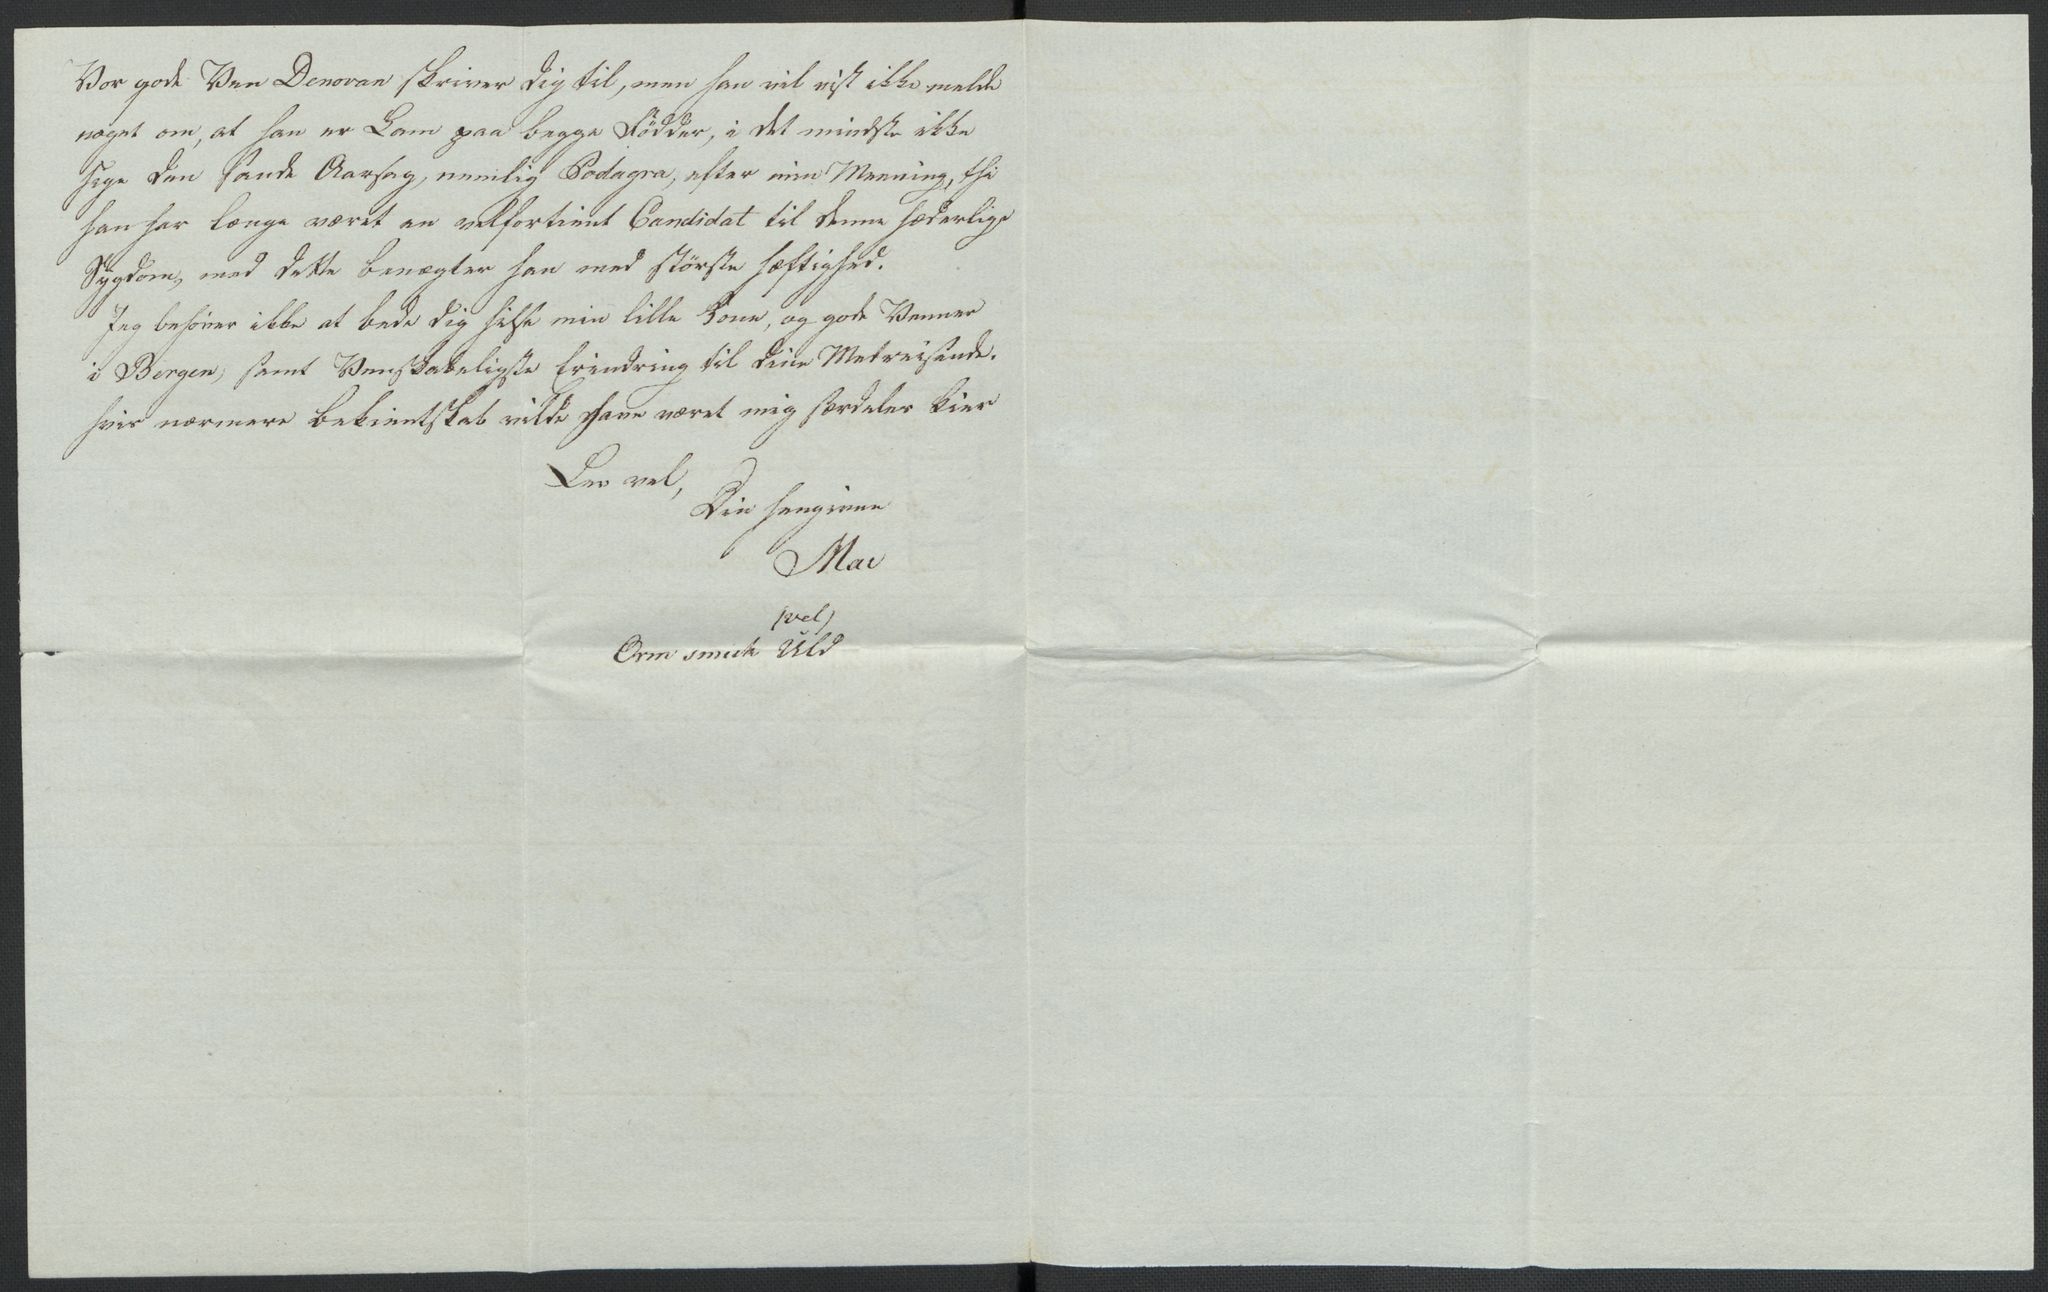 Vor gode Ven Denovan skriver dig til, men han vil vist ikke melde
noget om, at han er Lam paa begge Födder, i det mindste ikke
sige den sande Aarsag, nemlig Podagra, efter min Meening, thi
han har længe været en velfortient Candidat til denne hæderlige
Sygdom, med dette benægter han med störste hæftighed.
Jeg behöver ikke at bede dig hilse min lille Kone, og gode Venner
i Bergen, samt Venskabeligste Erindring til dine Medreisende.
hvis nærmere bekientskab vilde have været mig særdeles kier
Lev vel,
Din hengivne
Mac
(vel)
Orm smuk Uld